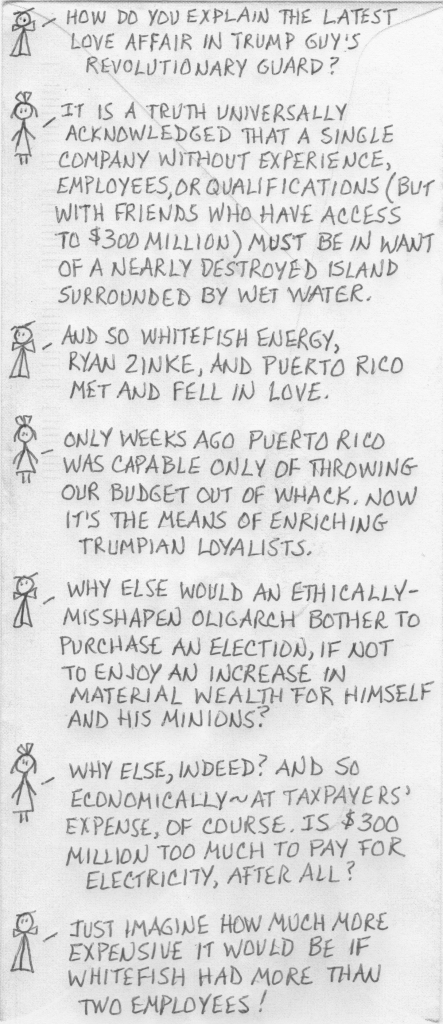 HOW DO YOU EXPLAIN THE LATEST
LOVE AFFAIR IN TRUMP GUY'S
REVOLUTIONARY GUARD?
IT IS A TRUTH UNIVERSALLY
ACKNOWLEDGED THAT A SINGLE
COMPANY WITHOUT EXPERIENCE,
EMPLOYEES, OR QUALIFICATIONS (BUT
WITH FRIENDS WHO HAVE ACCESS
TO $300 MILLION) MUST BE IN WANT
OF A NEARLY DESTROYED ISLAND
SURROUNDED BY WET WATER.
AND SO WHITEFISH ENERGY,
RYAN ZINKE, AND PUERTO RICO
MET AND FELL IN LOVE.
ONLY WEEKS AGO PUERTO RICO
WAS CAPABLE ONLY OF THROWING
OUR BUDGET OUT OF WHACK. NOW
IT'S THE MEANS OF ENRICHING
TRUMPIAN LOYALISTS.
WHY ELSE WOULD AN ETHICALLY-
MISSHAPEN OLIGARCH BOTHER TO
PURCHASE AN ELECTION, IF NOT
TO ENJOY AN INCREASE IN
MATERIAL WEALTH FOR HIMSELF
AND HIS MINIONS?
WHY ELSE, INDEED? AND SO
ECONOMICALLY~AT TAXPAYERS'
EXPENSE, OF COURSE. IS $300
MILLION TOO MUCH TO PAY FOR
ELECTRICITY, AFTER ALL?
JUST IMAGINE HOW MUCH MORE
EXPENSIVE IT WOULD BE IF
WHITEFISH HAD MORE THAN
TWO EMPLOYEES!